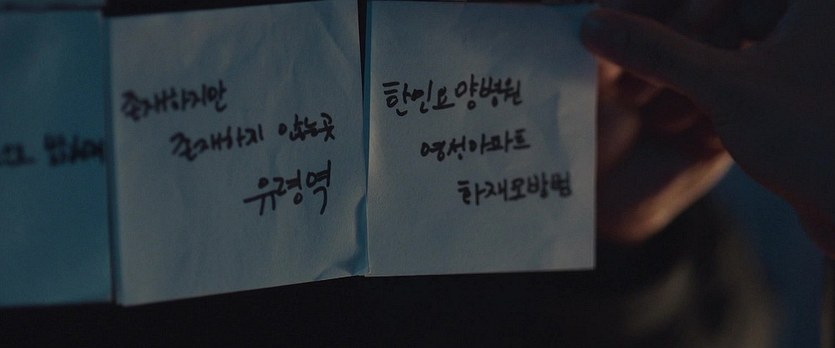 존재하지만
존재하지 않는곳
유령역
한인요양병원
영선아파트
화재모방범